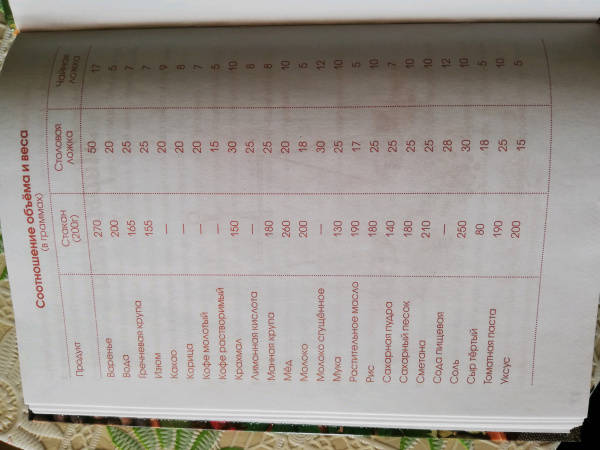 Соотношение объёма и веса
(в граммах)
Продукт Стакан (200г) Столовая ложка Чайная ложка
Варенье 270 50 17
Вода 200 20 5
Гречневая крупа 165 25 7
Изюм 155 25 7
Какао — 20 9
Корица — 20 8
Кофе молотый — 20 7
Кофе растворимый — 15 5
Крахмал 150 30 10
Лимонная кислота — 25 8
Манная крупа 180 25 8
Мёд 260 20 10
Молоко 200 18 5
Молоко сгущённое — 30 12
Мука 130 25 10
Растительное масло 190 17 5
Рис 180 25 10
Сахарная пудра 140 25 7
Сахарный песок 180 25 10
Сметана 210 25 10
Сода пищевая — 28 12
Соль 250 30 10
Сыр тёртый 80 18 5
Томатная паста 190 25 10
Уксус 200 15 5